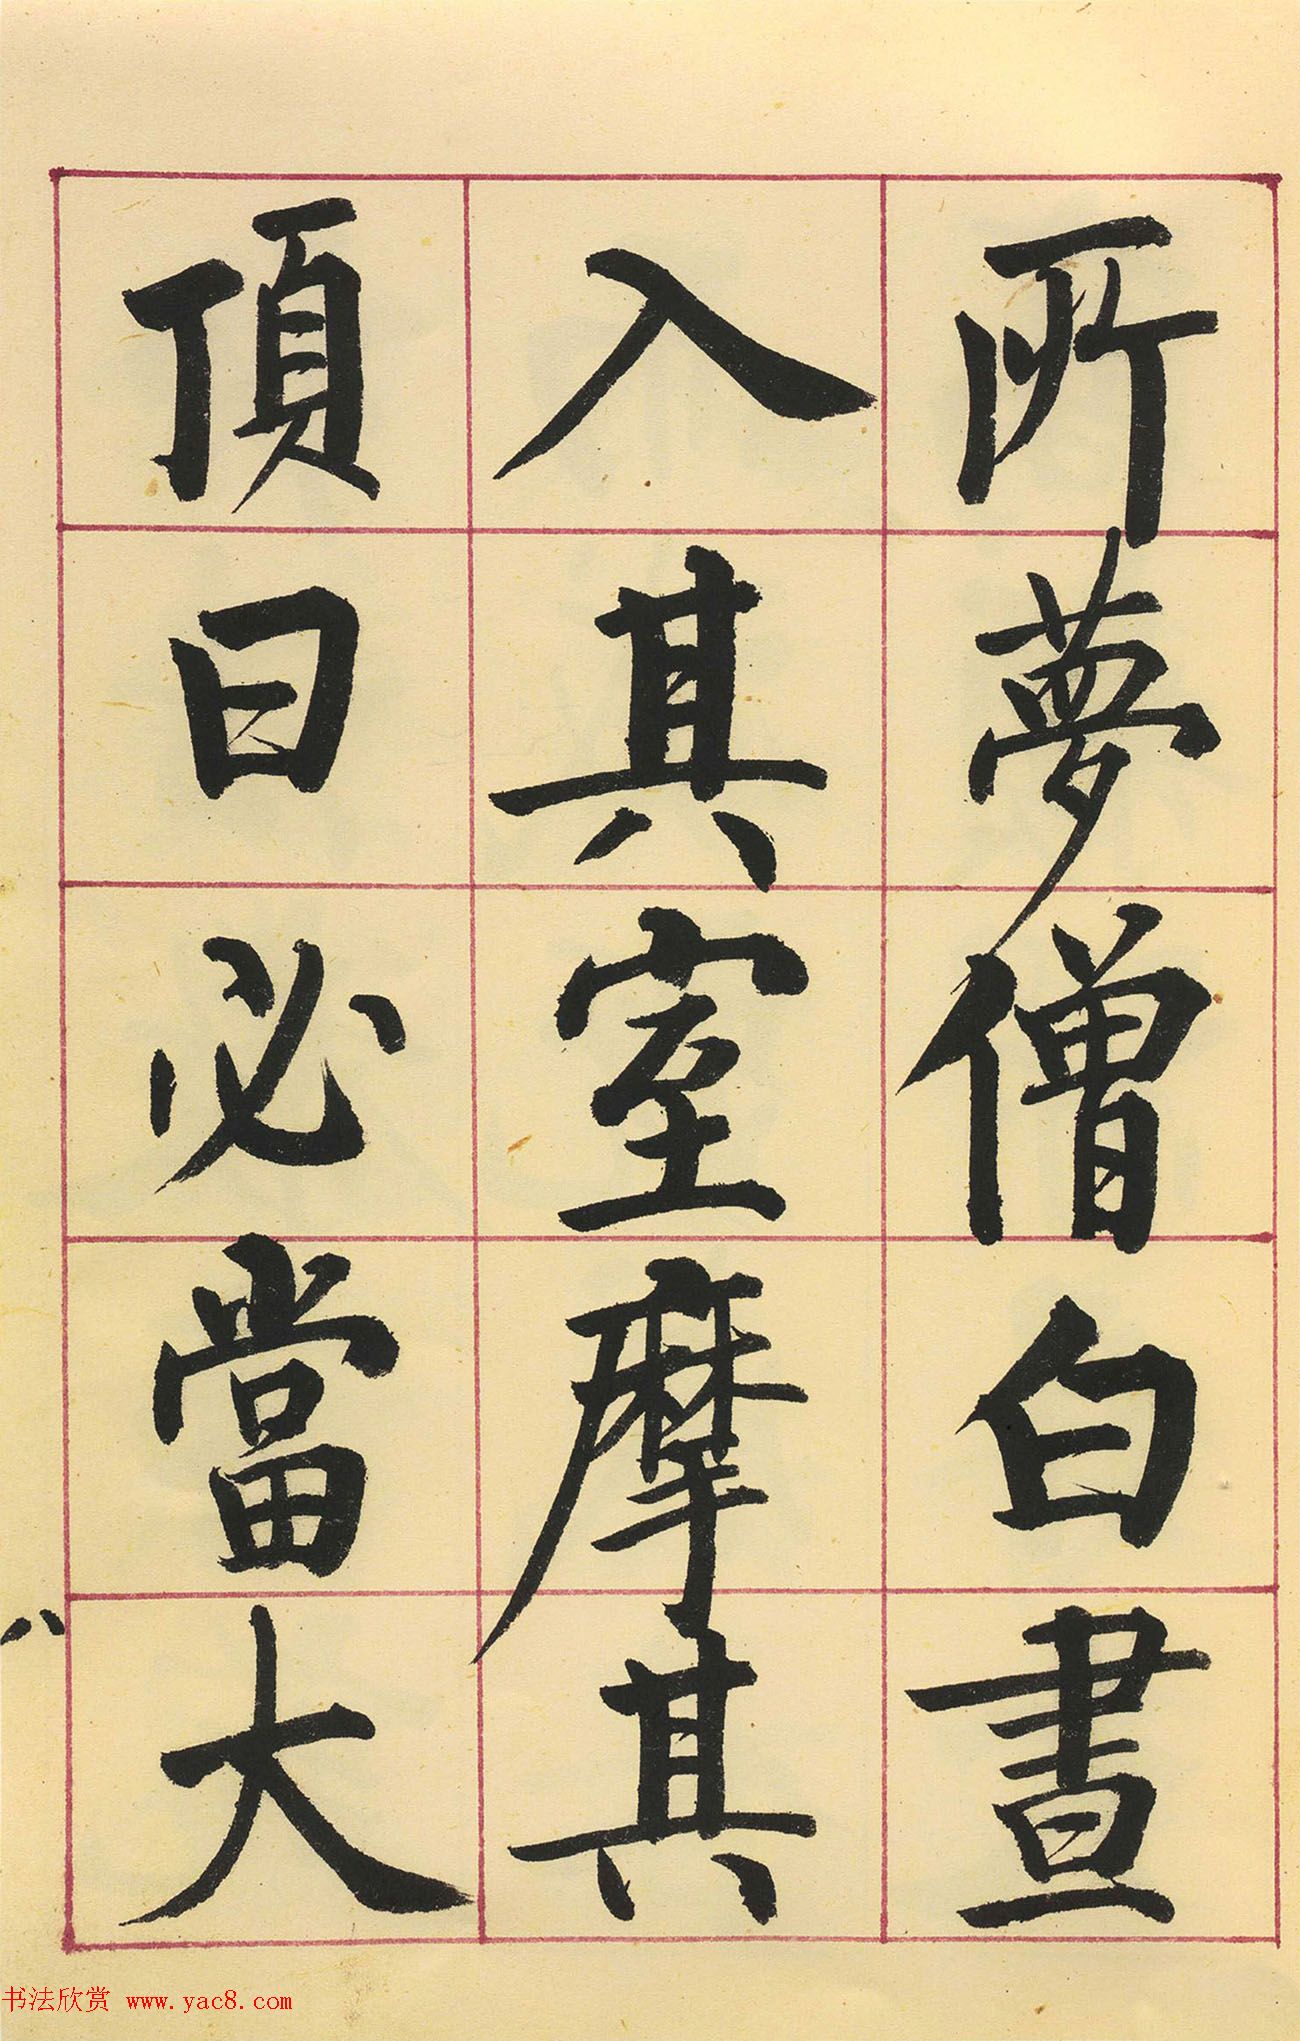 所夢僧白晝
入其室摩其
頂曰必當大
八
书法欣赏 www.yac8.com